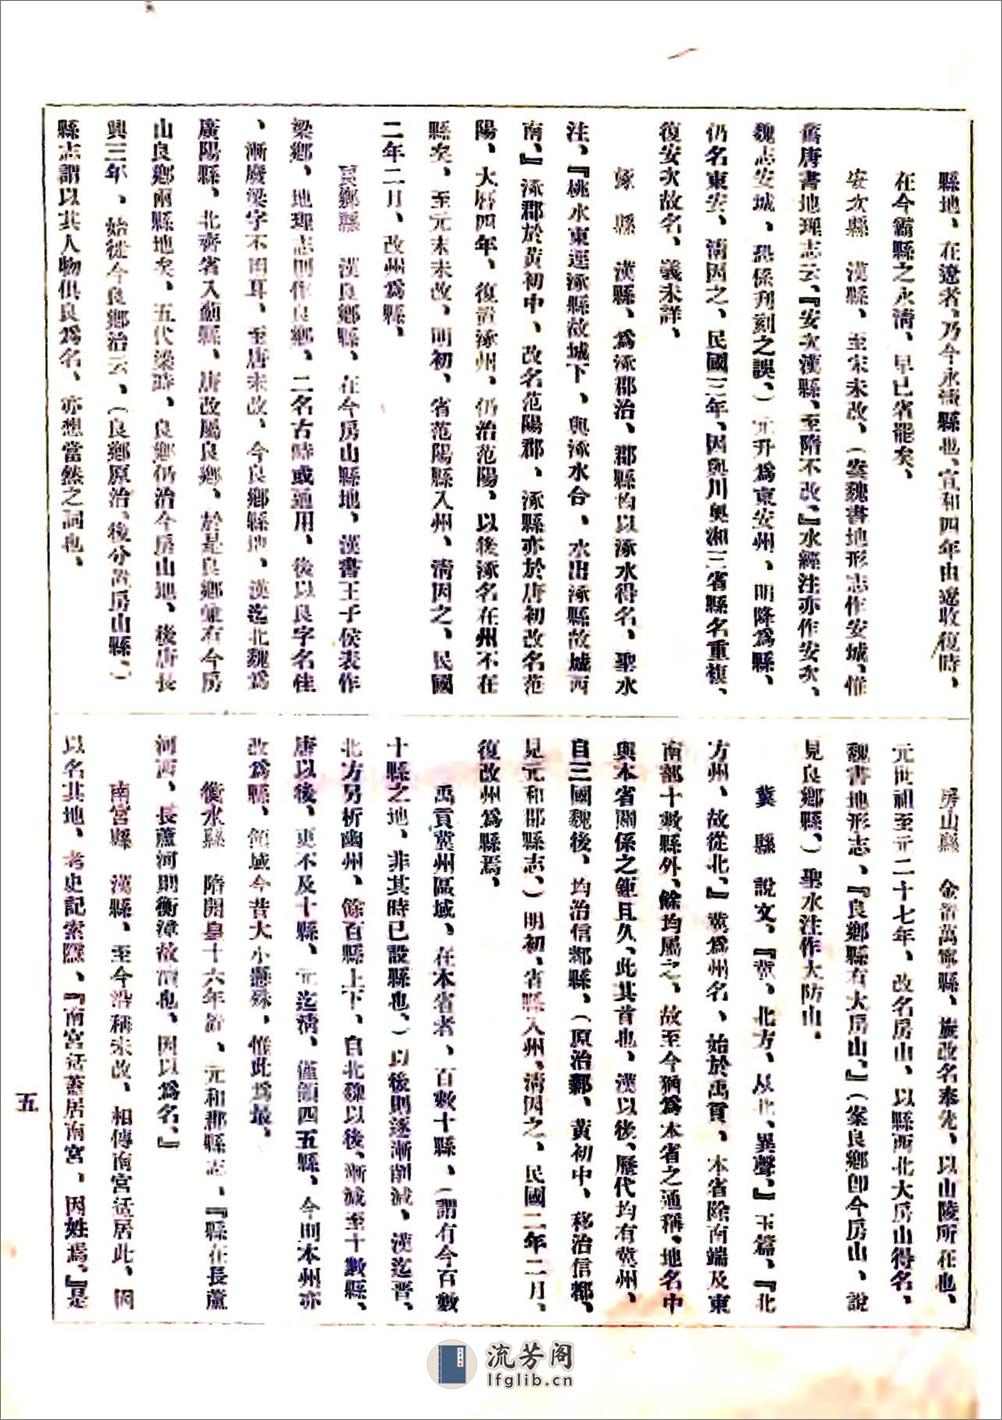 縣地、在遼者、乃今永清縣也、宣和四年由遼收復時、
在今霸縣之永清、早已省罷矣、
安次縣　漢縣、至宋未改、（案魏書地形志作安城、惟
舊唐書地理志云、『安次漢縣、至隋不改、』水經注亦作安次、
魏志安城、恐係刊刻之誤、）元升爲東安州、明降爲縣、
仍名東安、淸因之、民國三年、因與川粤湘三省縣名重複、
復安次故名、義未詳、
涿　縣　漢縣、爲涿郡治、郡縣均以涿水得名、聖水
注、『桃水東逕涿縣故城下、與涿水合、水出涿縣故城西
南、』涿郡於黃初中、改名范陽郡、涿縣亦於唐初改名范
陽、大曆四年、復置涿州、仍治范陽、以後涿名在州不在
縣矣、至元未改、明初、省范陽縣入州、淸因之、民國
二年二月、改州爲縣、
良鄕縣　漢良鄕縣、在今房山縣地、漢書王子侯表作
梁鄕、地理志則作良鄕、二名古時或通用、後以良字名佳
、漸廢梁字不用耳、至唐未改、今良鄕縣地、漢迄北魏爲
廣陽縣、北齊省入薊縣、唐改屬良鄕、於是良鄕兼有今房
山良鄕兩縣地矣、五代梁時、良鄕仍治今房山地、後唐長
興三年、始徙今良鄕治云、（良鄕原治、後分置房山縣、）
縣志謂以其人物俱良爲名、亦想當然之詞也、
房山縣　金置萬寧縣、旋改名奉先、以山陵所在也、
元世祖至元二十七年、改名房山、以縣西北大房山得名、
魏書地形志、『良鄕縣有大房山、』（案良鄕卽今房山、說
見良鄕縣、）聖水注作大防山、
冀　縣　說文、『冀、北方、从北、異聲、』玉篇、『北
方州、故從北、』冀爲州名、始於禹貢、本省除南端及東
南部十數縣外、餘均屬之、故至今猶爲本省之通稱、地名中
與本省關係之鉅且久、此其首也、漢以後、歷代均有冀州、
自三國魏後、均治信都縣、（原治鄴、黃初中、移治信都、
見元和郡縣志、）明初、省縣入州、淸因之、民國二年二月、
復改州爲縣焉、
禹貢冀州區域、在本省者、百數十縣、（謂有今百數
十縣之地、非其時已設縣也、）以後則逐漸削減、漢迄晉、
北方另析幽州、餘百縣上下、自北魏以後、漸減至十數縣、
唐以後、更不及十縣、元迄淸、僅領四五縣、今則本州亦
改爲縣、領域今昔大小懸殊、惟此爲最、
衡水縣　隋開皇十六年置、元和郡縣志、『縣在長蘆
河西、長蘆河則衡漳故瀆也、因以爲名、』
南宮縣　漢縣、至今沿稱未改、相傳南宮适居此、因
以名其地、考史記索隱、『南宮适蓋居南宮、因姓焉、』是
五
流芳阁
lfglib.cn